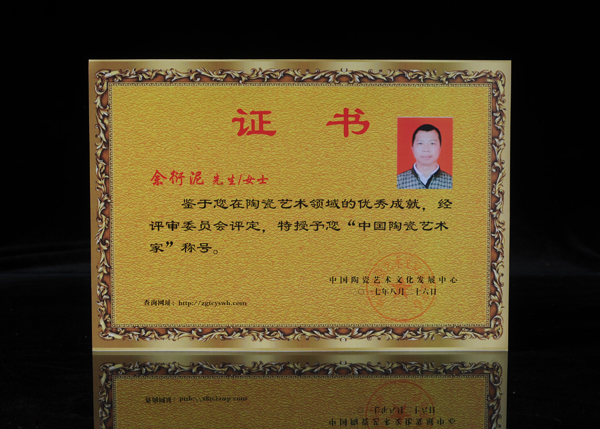 证 书
余衍泥 先生/女士
鉴于您在陶瓷艺术领域的优秀成就，经
评审委员会评定，特授予您“中国陶瓷艺术
家”称号。
中国陶瓷艺术文化发展中心
年八月二十六日
查询网址：http://zgtcyswh.com